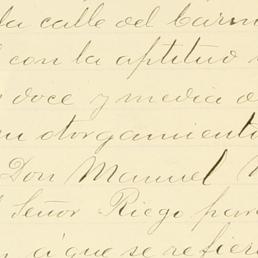 la calle del Carm
con la aptitud
doce y media d
otorgamiento
Don Manuel
Señor Riego par
á que se refier